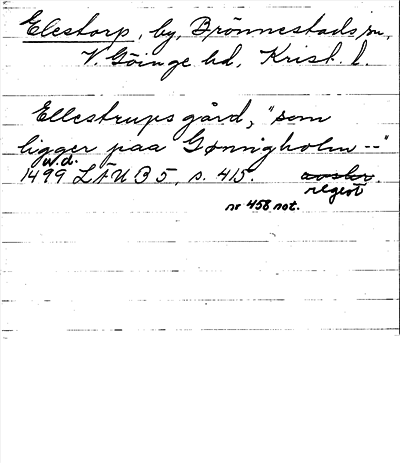 Elestorp, by, Brönnestads sn,
V. Göinge hd, Krist. l.
Ellestrups gård, "som
ligger paa Gønnigholm --"
w.d.
1499 LÄUB 5, s. 415. avskr.
regest
nr 458 not.